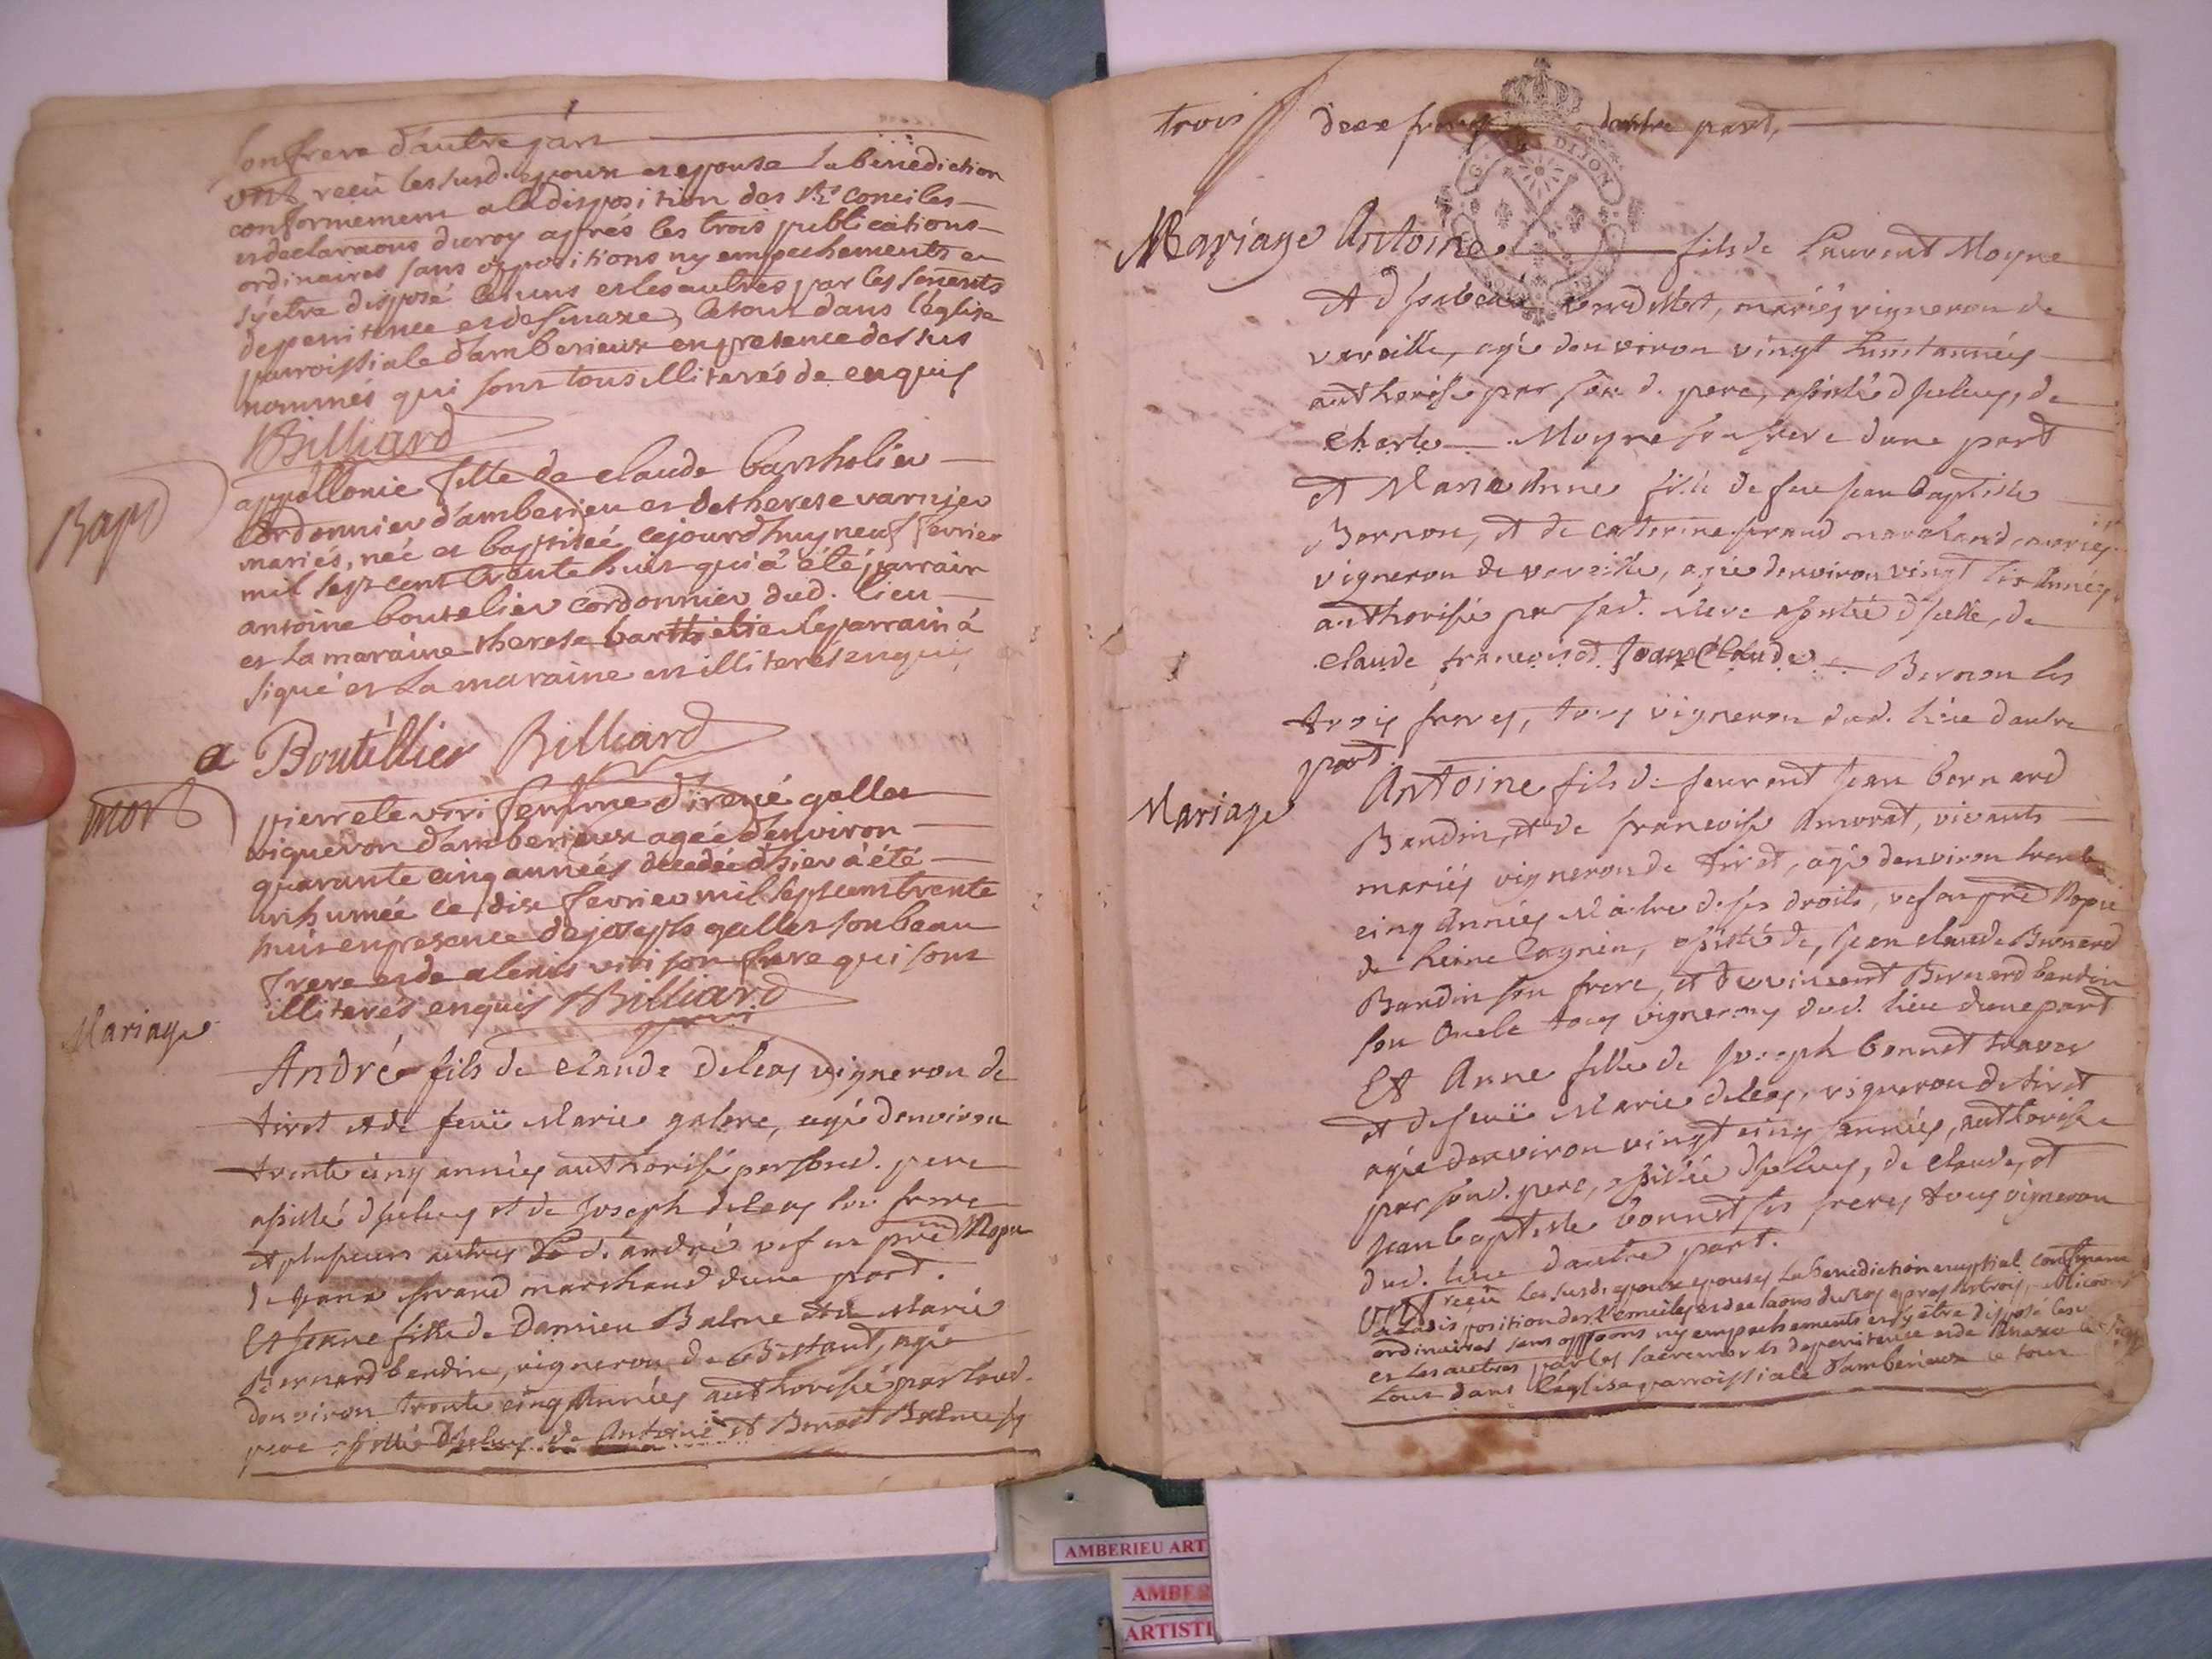 son frere d'autre part
ont reçu les susd. epoux et epouse la benediction
conformement a la disposition des Sts conciles
et declaraons du roy aprés les trois publications
ordinaires sans oppositions ny empechements et
s'y etre disposé les uns et les autres par les
de penitence et de letout dans leglise
parroissiale d'amberieux en presence des sus
nommés qui sont tous illiterés de enquis
Billiard
Bapt
appollonie fille de claude barthelier
Cordonnier d'amberieu et de therese varnier
mariés, neé et baptiseé cejourdhuy neuf fevrier
mil sept cent trente huit qui a été parrain
antoine boutelier cordonnier dud. lieu
et la maraine therese barthelie le parrain à
signé et la maraine est illiteres enquis
a Boutéllier Billiard
mort
pierrete viri femme d'irené galler
vigneron d'amberieux ageé d'environ
quarante cinq années decedeé d'hier à été
inhumée ce dix fevrier mil sept cent trente
huit en presence de joseph galler son beau
frere et de alexis viri son frere qui sont
illiterés enquis Billiard
Mariage
André fils de claude deleas vigneron de
tiret et de feüe Marie galere, agé denviron
trente cinq années authorisé par sond. pere
assisté d'jceluy et de Joseph deleas son frere
et plusieurs autres Led. andré vef en pres Nopce
de Jeanne ferrand marchand dune part.
Et Jeanne fille de Damien Balme et de Marie
Bernard bendin, vigneron de Bettant, agée
denviron trente cinq Années authorisée par sond.
pere assistée d'jceluy de Antoine et Benoit Balme ses
trois
deux freres dautre part,
G. DIJON
Mariage
Antoine fils de Laurent Moyne
et d'jsabeau mariés vigneron de
vareille, agé denviron vingt huit années
authorisé par son d. pere, assisté d'jceluy, de
Charle Moyne son frere dune part
et Marie Anne fille de feu jean baptiste
Bernon, et de caterine ferrand marchand, mariés
vigneron de vareille, agée denviron vingt six Années
authorisée par sad. Mere assistée d'jcelle, de
claude francois et Jean Claude Bernon les
trois freres, tous vigneron dud. lieu dautre
part.
Mariage
Antoine fils de feu Jean bernard
Bandin, et de francoise Amorat, vivants
mariés vigneron de tiret, agé denviron trente
cinq Années Maitre de ses droits, vef en pres Nopce
de heine Cagnin, assisté de, jean claude Bernard
Bandin son frere, et de vincent Bernard bendin
son Oncle tous vignerons dud. lieu dune part
Et Anne fille de Joseph bonnet traver
et de feüe Marie deleas, vigneron de tiret
agée denviron vingt cinq années, authorisée
par sond. pere, assistée d'jceluy, de claude, et
jean baptiste bonnet ses freres tous vigneron
dud. lieu dautre part.
Ont reçu les susd. epoux epouses la benediction nuptial conformement
a la disposition des Sts conciles et declaaons du roy apres les trois publicaons
ordinaires sans oppoons ny empechements et s'y étre disposé les uns
et les autres par les sacrements de penitence et de
tout dans l'église parroissiale d'amberieux le tout
AMBERIEU ART
AMBER
ARTISTI